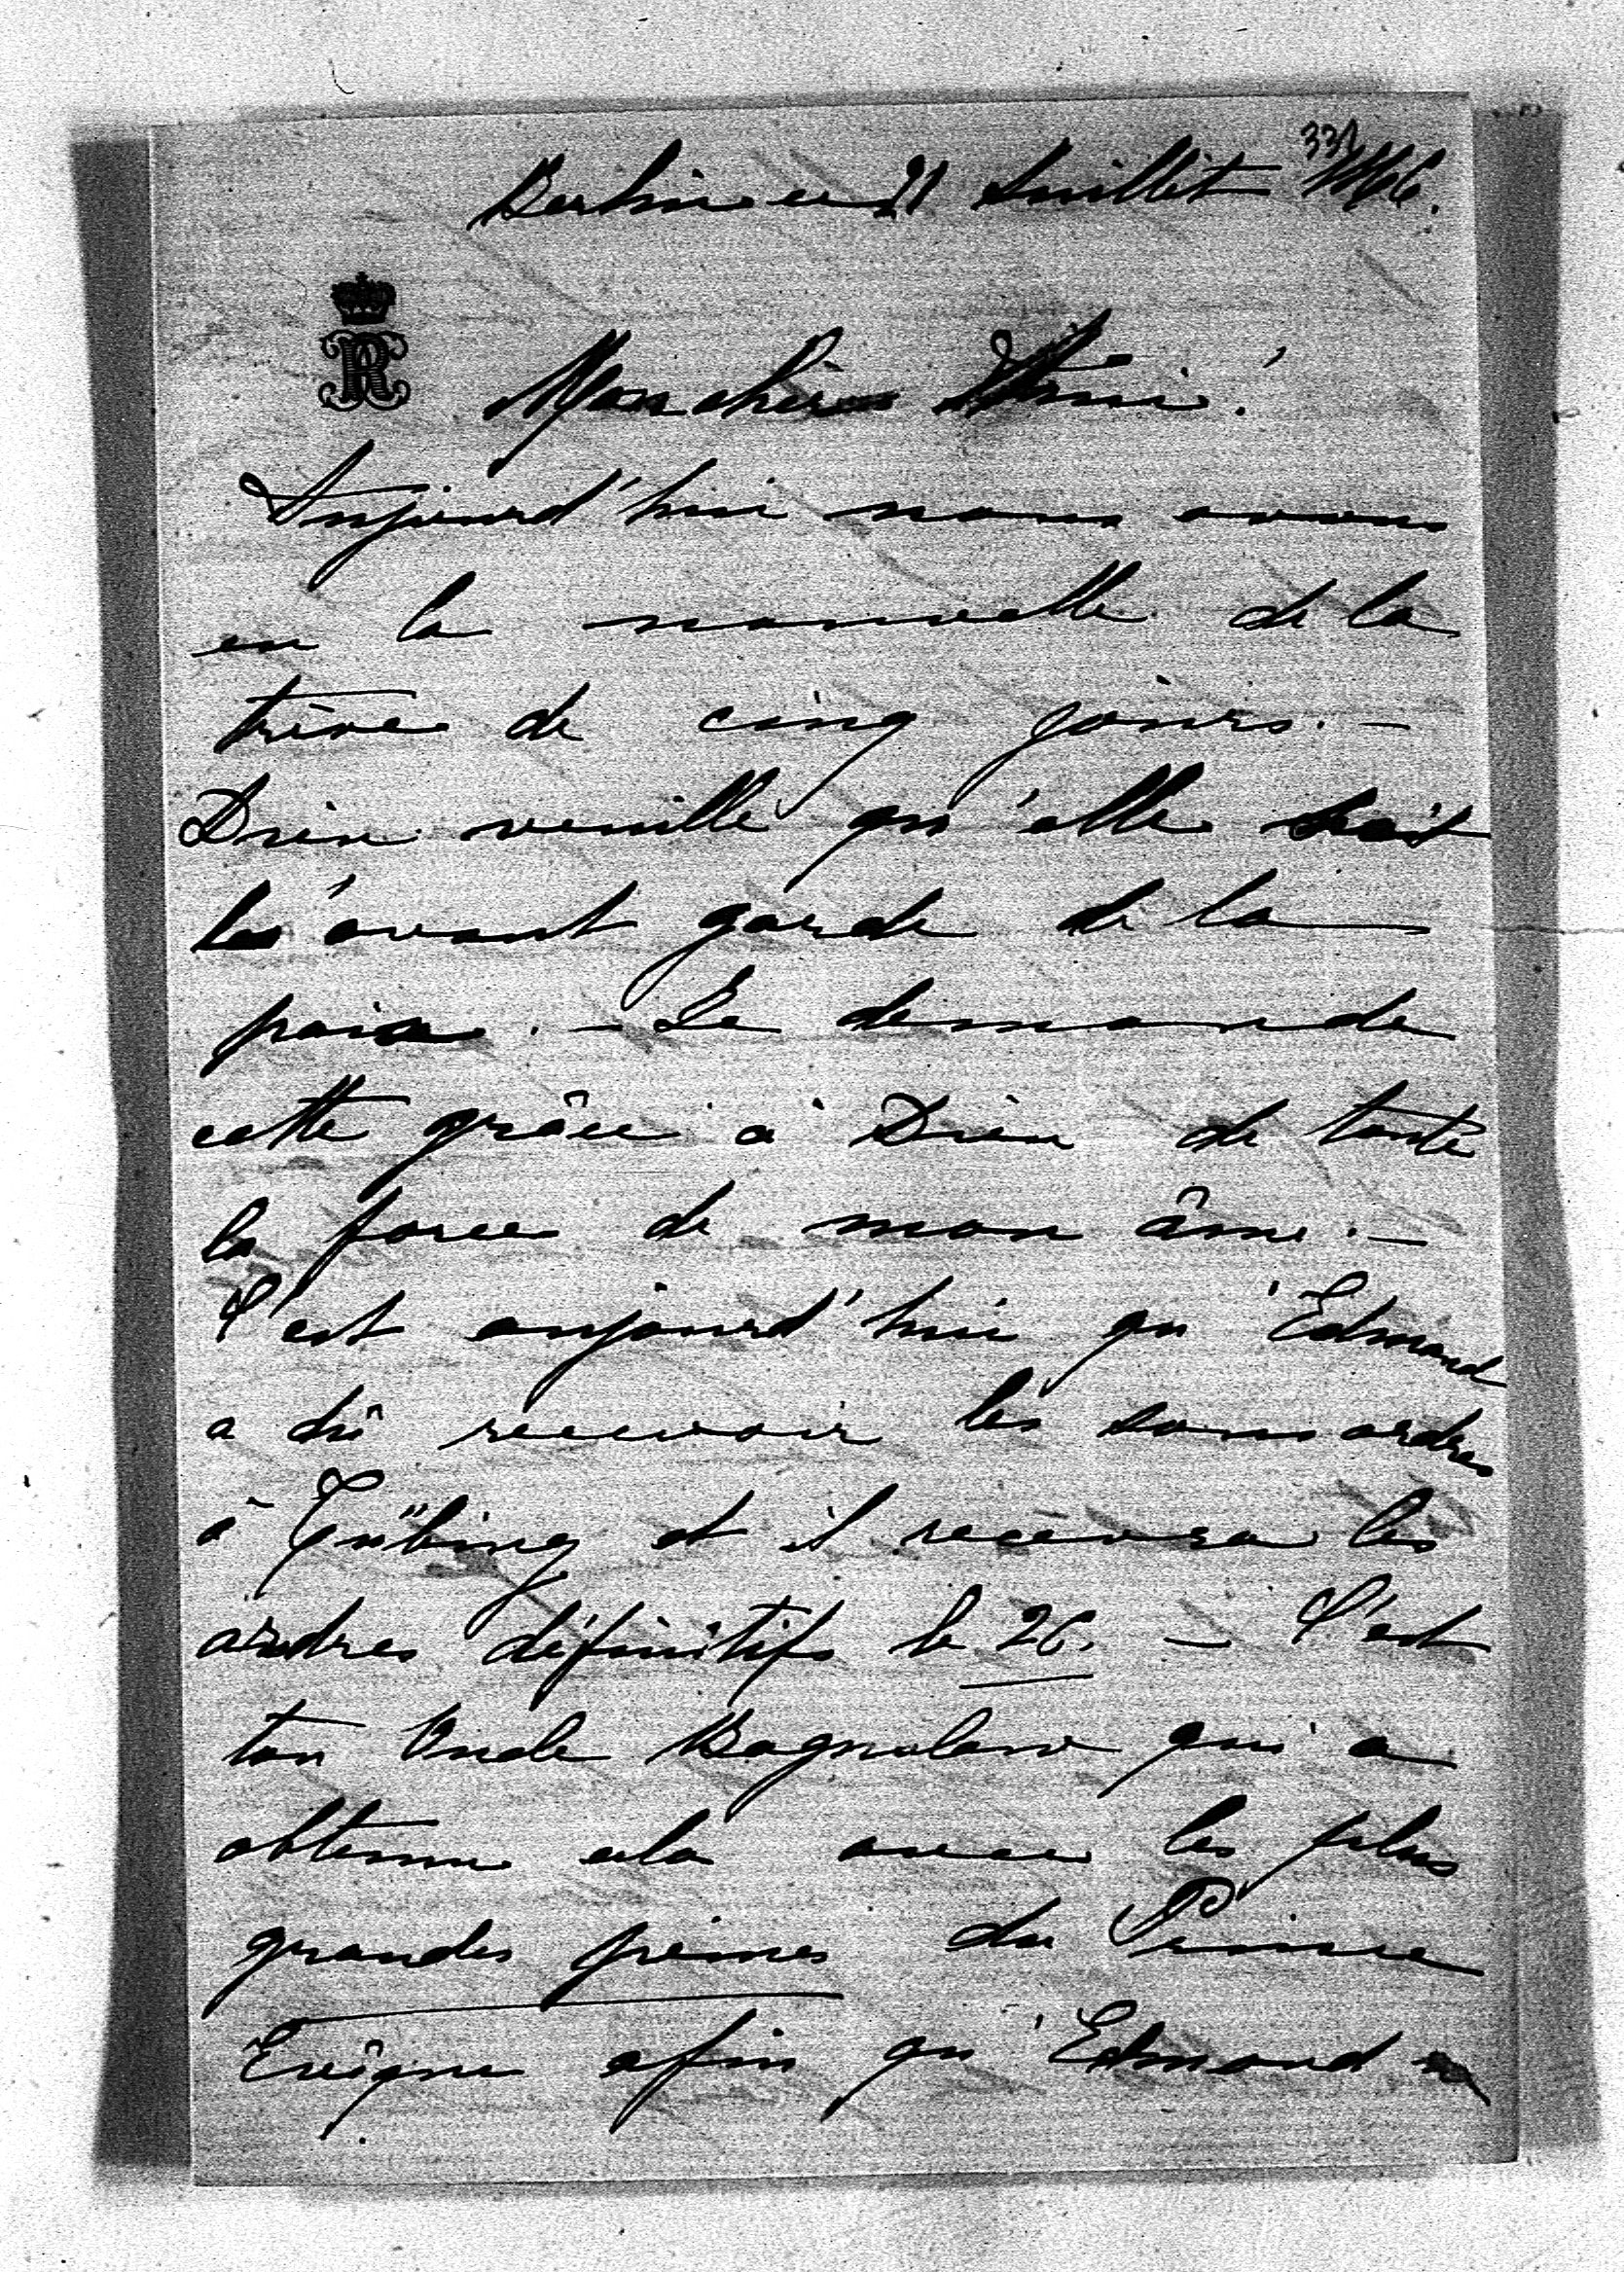 Berlin ce 21 Juillet 1866.
33
Mon cher Ami!
Aujourd'hui nous avons
eu la nouvelle de la
trève de cinq jours. —
Dieu veuille qu'elle soit
l'avant garde de la
paix. — Je demande
cette grâce à Dieu de toute
la force de mon âme. —
C'est aujourd'hui qu'Edmond
a dû recevoir les sous ordres
à Tübing et il recevra les
ordres définitifs le 26. — C'est
ton Oncle Boguslaw qui a
obtenu cela avec les plus
grandes peines du Prince
Evêque afin qu'Edmond